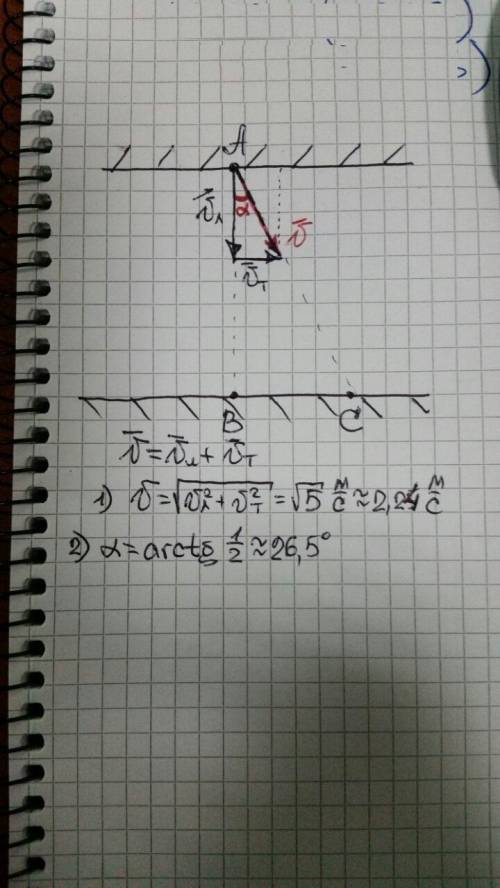 A
v⃗л α v⃗
v⃗т
B C
v⃗ = v⃗л + v⃗т
1) v = √(vл² + vт²) = √5 м/с ≈ 2,24 м/с
2) α = arctg 1/2 ≈ 26,5°